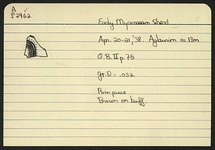 A
P 2962
Early Mycenaean Sherd
Apr. 20-21, '38. Aglaurion
O.B. II p. 75
Gr. D = .032
Rim piece
Brown on buff.